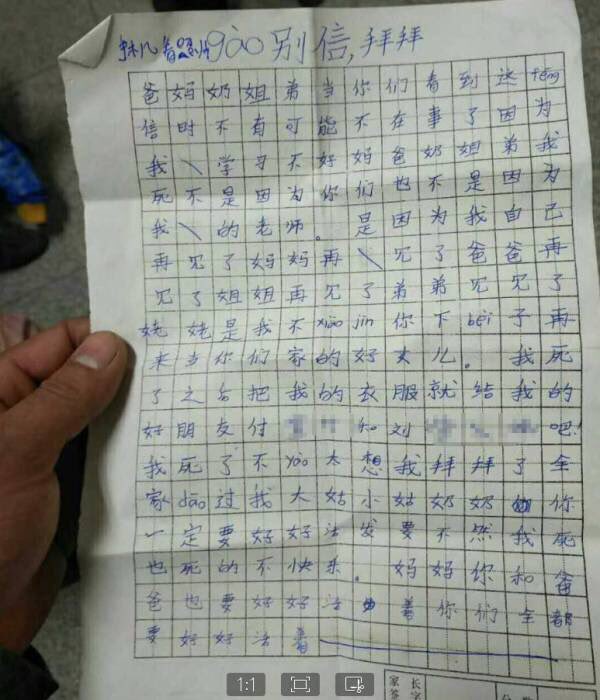 gào别信,拜拜
爸妈奶姐弟当你们看到这fēng
信时不有可能不在事了因为
我\学习不好妈爸奶姐弟我
死不是因为你们也不是因为
我\的老师。是因为我自己
再见了妈妈再\见了爸爸再
见了姐姐再见了弟弟见见了
姥姥是我不xiào jìn你下bèi子再
来当你们家的好女儿。我死
了之后把我的衣服就给我的
好朋友付 和刘 吧!
我死了不yào太想我拜拜了全
家dāo过我大姑小姑奶奶 你
一定要好好活 要不然我死
也死的不快乐。妈妈你和爸
爸也要好好活 着你们全都
要好好活着
家长
签字